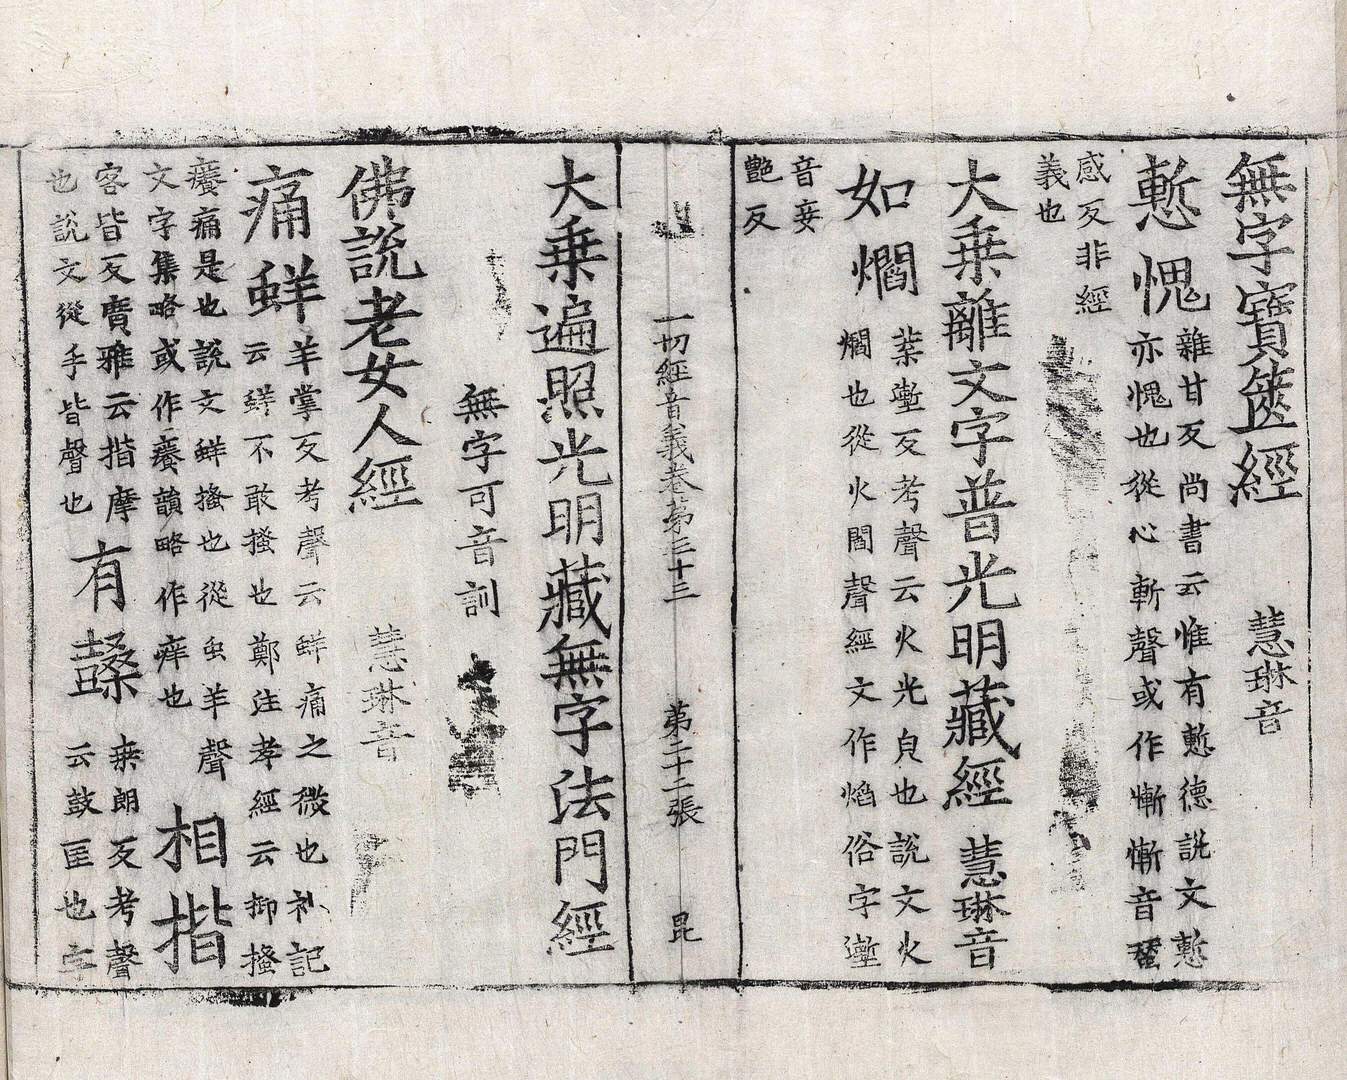 無字寶篋經 慧琳音
慙愧
雜甘反尚書云惟有慙德説文慙
亦愧也從心斬聲或作慚慚音蠶
感反非經
義也
大乗離文字普光明藏經 慧琳音
如爓
葉壍反考聲云火光皃也説文火
爓也從火閻聲經文作焰俗字壍
音妾
艶反
一切經音義卷苐三十三 苐二十二張 昆
大乗遍照光明藏無字法門經
無字可音訓
佛説老女人經 慧琳音
痛蛘
羊掌反考聲云蛘痛之微也礼記
云蛘不敢搔也鄭注孝經云抑搔
癢痛是也説文蛘搔也從虫羊聲
文字集略或作癢韻略作痒也
相揩
客皆反廣雅云揩摩
也説文從手皆聲也
有𪔣
桒朗反考聲
云鼓匡也字